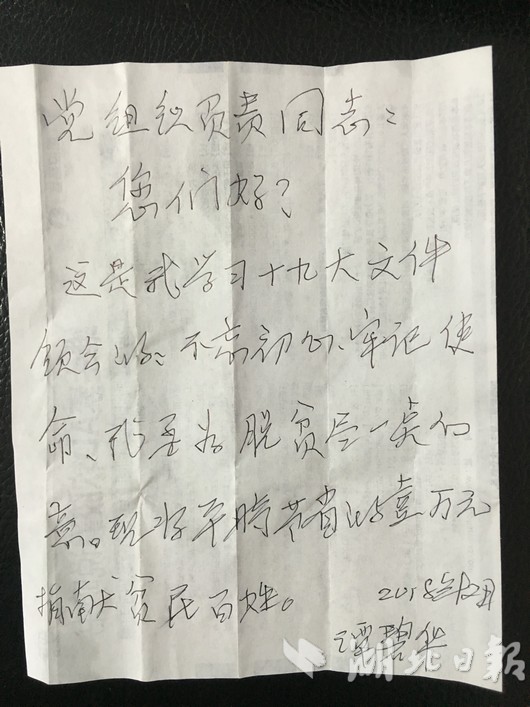 党组织负责同志：
您们好？
这是我学习十九大文件
领会的：不忘初心、牢记使
命、我要为脱贫尽一点心
意。现将平時节省的壹万元
捐献贫民百姓。
2018年12月
谭碧华
湖北日報